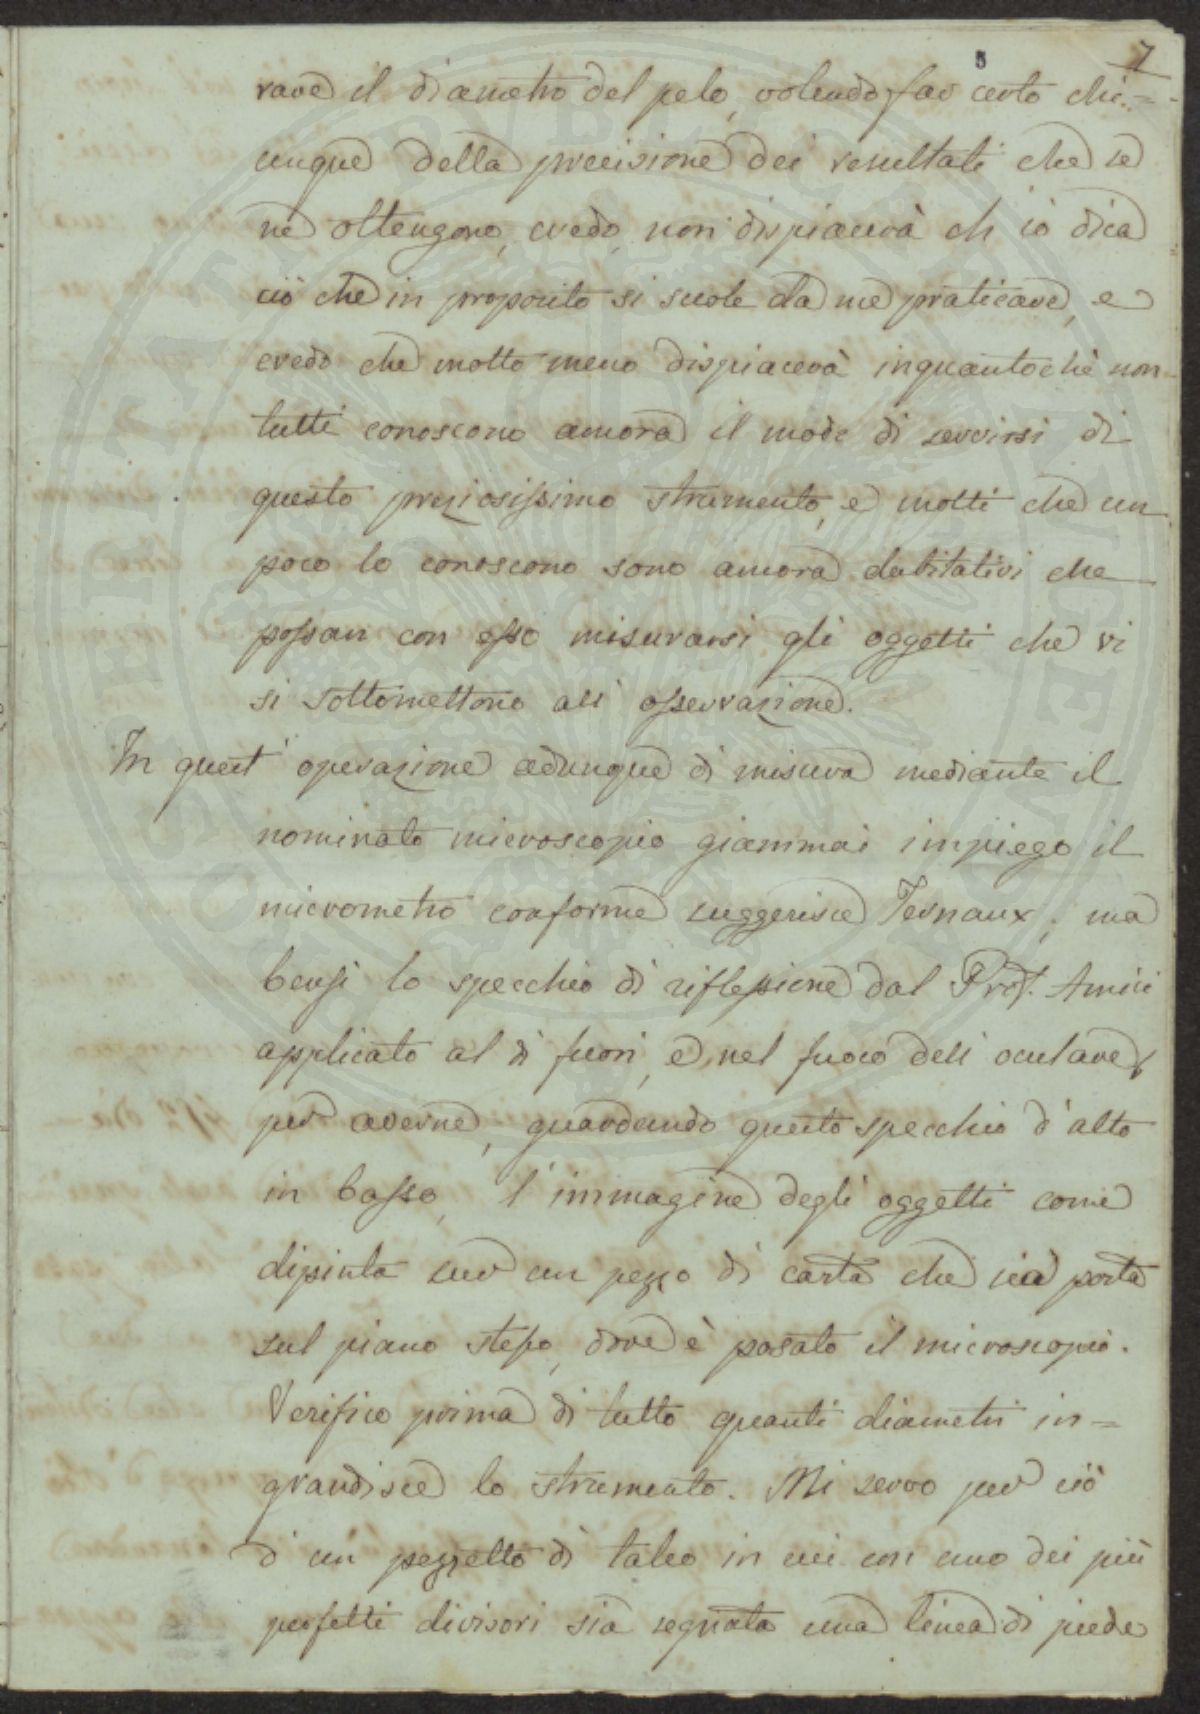 7
rare il diametro del pelo, volendo far certo chi=
unque della precisione dei resultati che se
ne ottengono, credo, non dispiacerà ch' io dica
ciò che in proposito si suole da me praticare, e
credo che molto meno dispiacerà inquantochè non
tutti conoscono ancora il modo di servirsi di
questo preziosissimo strumento, e molti che un
poco lo conoscono sono ancora dubitativi che
possan con esso misurarsi gli oggetti che vi
si sottomettono all' osservazione.
In quest' operazione adunque di misura mediante il
nominato microscopio giammai impiego il
micrometro conforme suggerisce Ternaux; ma
bensì lo specchio di riflessione dal Prof. Amici
applicato al di fuori, e nel fuoco dell' oculare,
per averne, guardando questo specchio d' alto
in basso, l' immagine degli oggetti come
dipinta sur un pezzo di carta che sia porta
sul piano stesso, dove è posato il microscopio.
Verifico prima di tutto quanti diametri in=
grandisce lo strumento. Mi servo per ciò
d' un pezzetto di talco in cui con uno dei più
perfetti divisori sia segnata una linea di piede